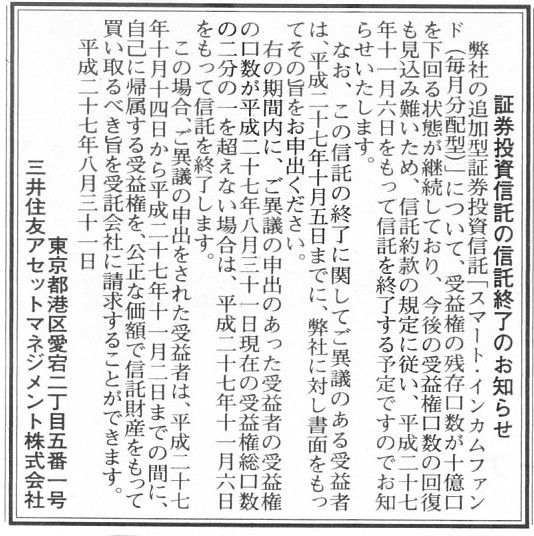 証券投資信託の信託終了のお知らせ
弊社の追加型証券投資信託「スマート・インカムファン
ド（毎月分配型）」について、受益権の残存口数が十億口
を下回る状態が継続しており、今後の受益権口数の回復
も見込み難いため、信託約款の規定に従い、平成二十七
年十一月六日をもって信託を終了する予定ですのでお知
らせいたします。
なお、この信託の終了に関してご異議のある受益者
は、平成二十七年十月五日までに、弊社に対し書面をもっ
てその旨をお申出ください。
右の期間内に、ご異議の申出のあった受益者の受益権
の口数が平成二十七年八月三十一日現在の受益権総口数
の二分の一を超えない場合は、平成二十七年十一月六日
をもって信託を終了します。
この場合、ご異議の申出をされた受益者は、平成二十七
年十月十四日から平成二十七年十一月二日までの間に、
自己に帰属する受益権を、公正な価額で信託財産をもって
買い取るべき旨を受託会社に請求することができます。
平成二十七年八月三十一日
東京都港区愛宕二丁目五番一号
三井住友アセットマネジメント株式会社